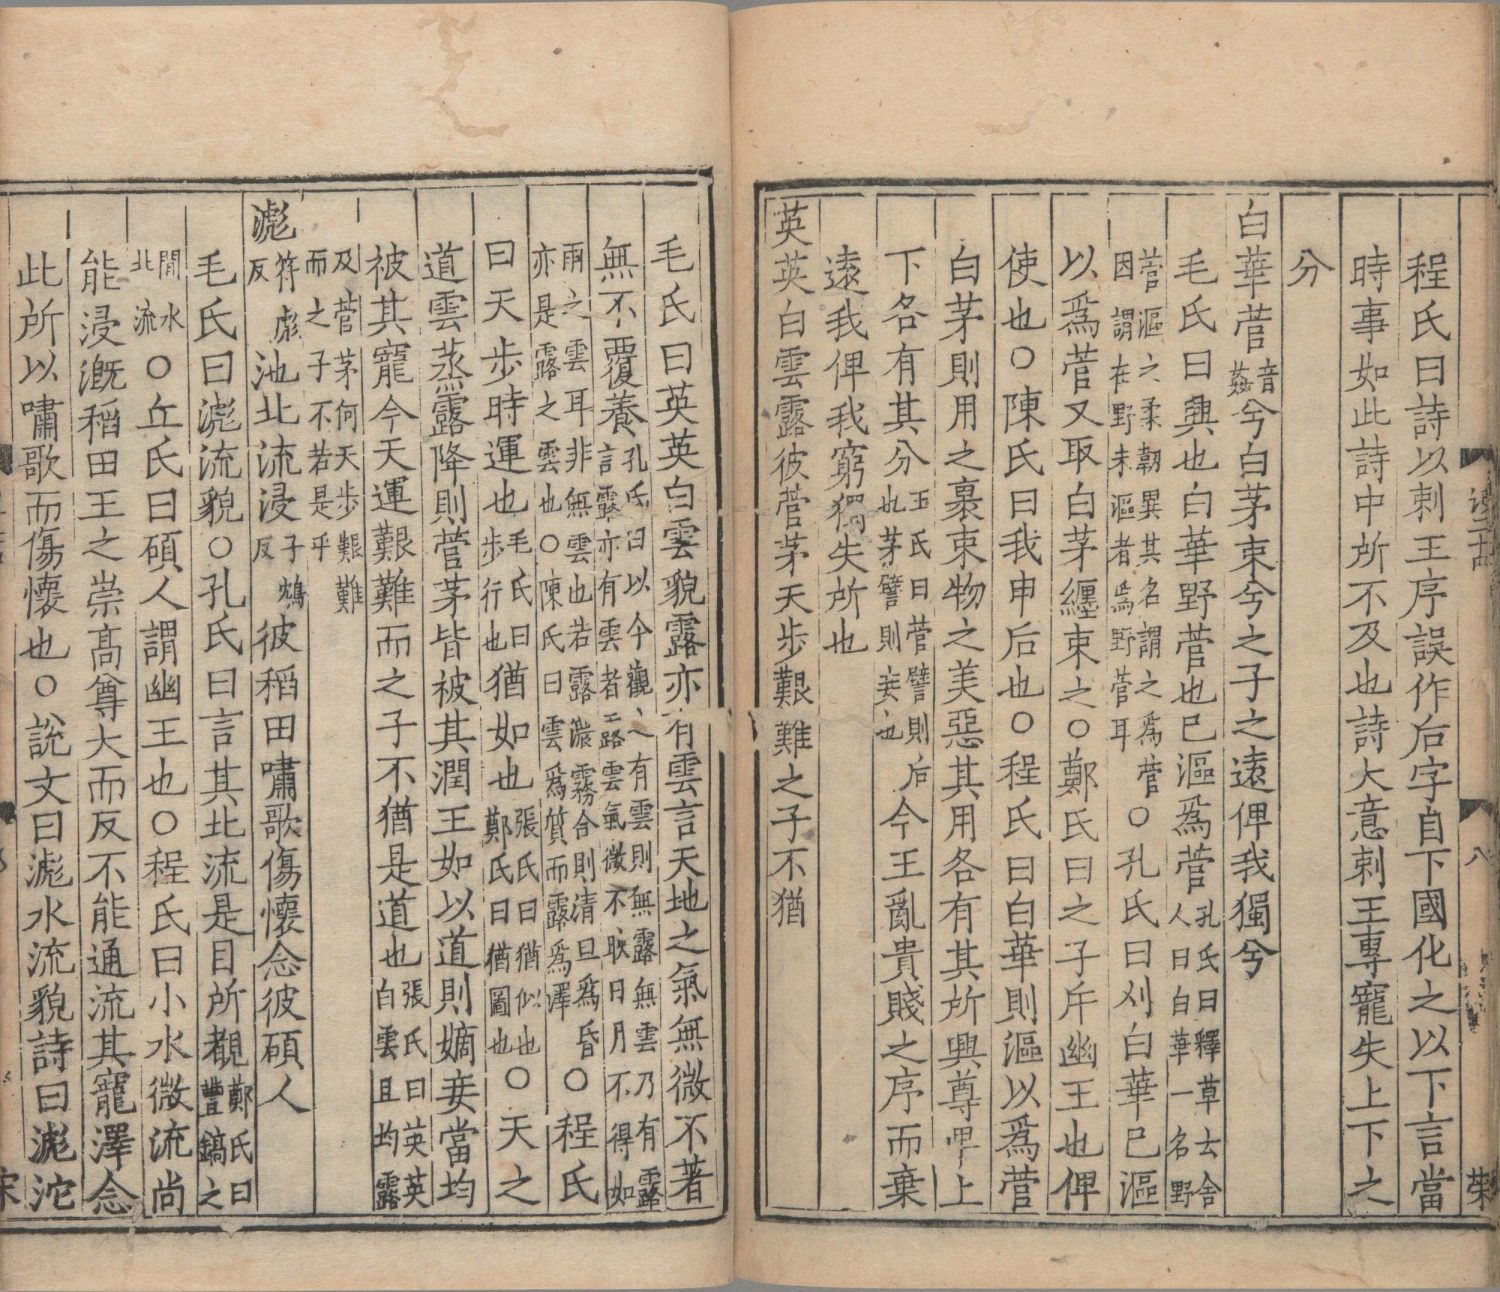 程氏曰詩以刺王序誤作后字自下國化之以下言當
時事如此詩中所不及也詩大意刺王專寵失上下之
分
白華菅音菰兮白茅束兮之子之遠俾我獨兮
毛氏曰興也白華野菅也已漚爲菅孔氏曰釋草云舍人曰白華一名野
菅漚之柔韌異其名謂之爲菅因謂在野未漚者爲野菅耳○孔氏曰刈白華已漚
以爲菅又取白茅纒束之○鄭氏曰之子斥幽王也俾
使也○陳氏曰我申后也○程氏曰白華則漚以爲菅
白茅則用之裹束物之美惡其用各有其所興尊卑上
下各有其分也王氏曰菅譬則后茅譬則妾也今王亂貴賤之序而棄
遠我俾我窮獨失所也
英英白雲露彼菅茅天步艱難之子不猶
毛氏曰英英白雲貌露亦有雲言天地之氣無微不著
無不覆養孔氏曰以今觀之有雲則無露無雲乃有露言露亦有雲者露雲氣微不映日月不得如
雨之雲耳非無雲也若露濃霧合則清旦爲昏亦是露之雲也○陳氏曰雲爲質而露爲澤○程氏
曰天步時運也毛氏曰步行也猶如也張氏曰猶似也鄭氏曰猶圖也○天之
道雲蒸露降則菅茅皆被其潤王如以道則嫡妾當均
被其寵今天運艱難而之子不猶是道也張氏曰英英白雲且均露
及菅茅何天步艱難而之子不若是乎
滮符彪反池北流浸子鴆反彼稻田嘯歌傷懷念彼碩人
毛氏曰滮流貌○孔氏曰言其北流是目所覩鄭氏曰豐鎬之
間水北流○丘氏曰碩人謂幽王也○程氏曰小水微流尚
能浸漑稻田王之崇高尊大而反不能通流其寵澤念
此所以嘯歌而傷懷也○說文曰滮水流貌詩曰滮沱